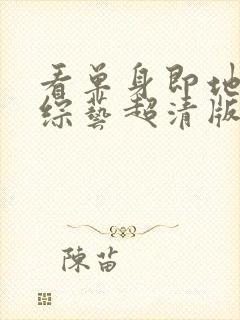 看单身即地
综藝超清版
陳苗